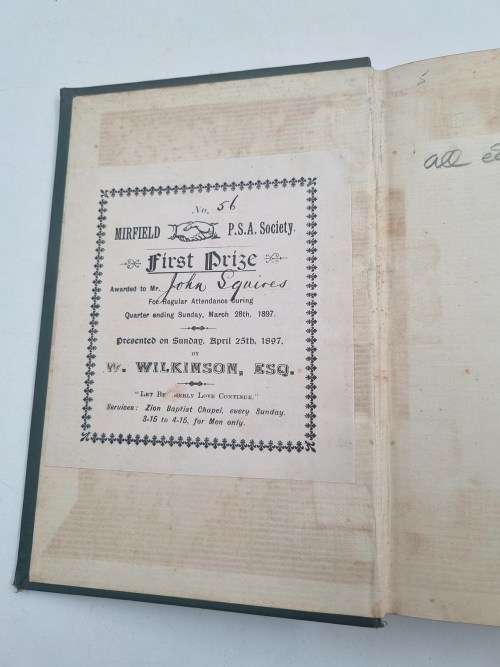 No. 56
MIRFIELD P.S.A. Society.
First Prize
Awarded to Mr. John Squires
For Regular Attendance during
Quarter ending Sunday, March 28th, 1897.
Presented on Sunday, April 25th, 1897,
BY
W. WILKINSON, ESQ.
"LET BROTHERLY LOVE CONTINUE."
Services: Zion Baptist Chapel, every Sunday.
3-15 to 4-15, for Men only.
5
all